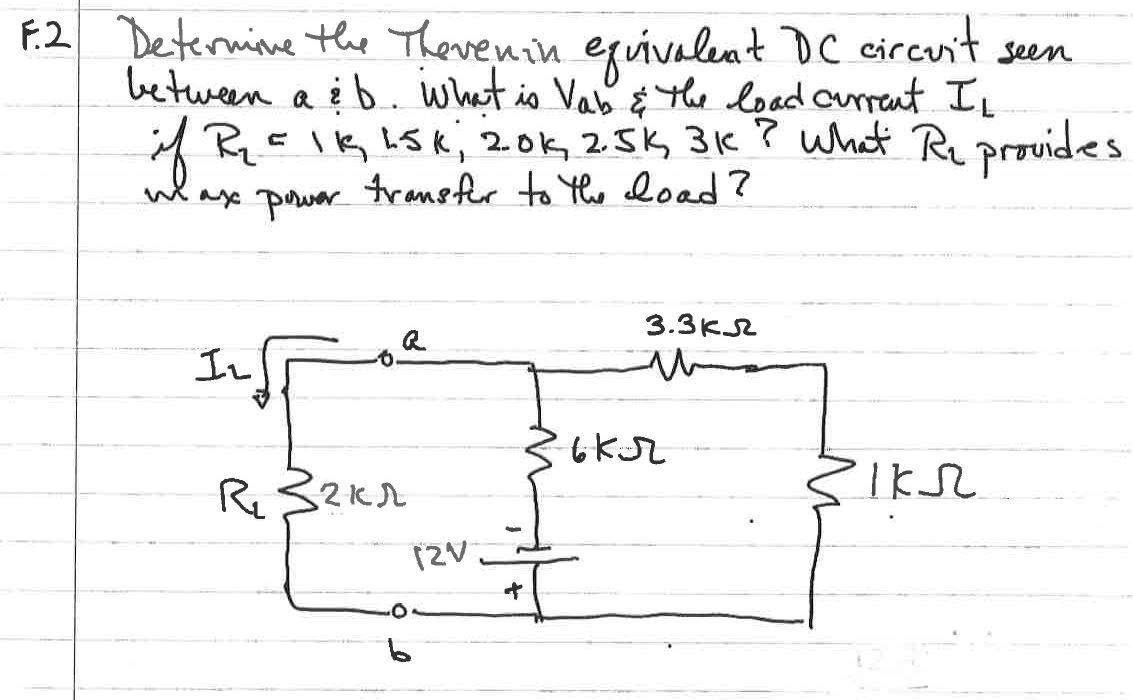 F.2 Determine the Thevenin equivalent DC circuit seen
between a & b. What is Vab & the load current IL
if RL = 1K, 1.5K, 2.0K, 2.5K, 3K? What RL provides
max power transfer to the load?
3.3KΩ
a
IL
6KΩ
RL 2KΩ
1KΩ
-
12V
+
b